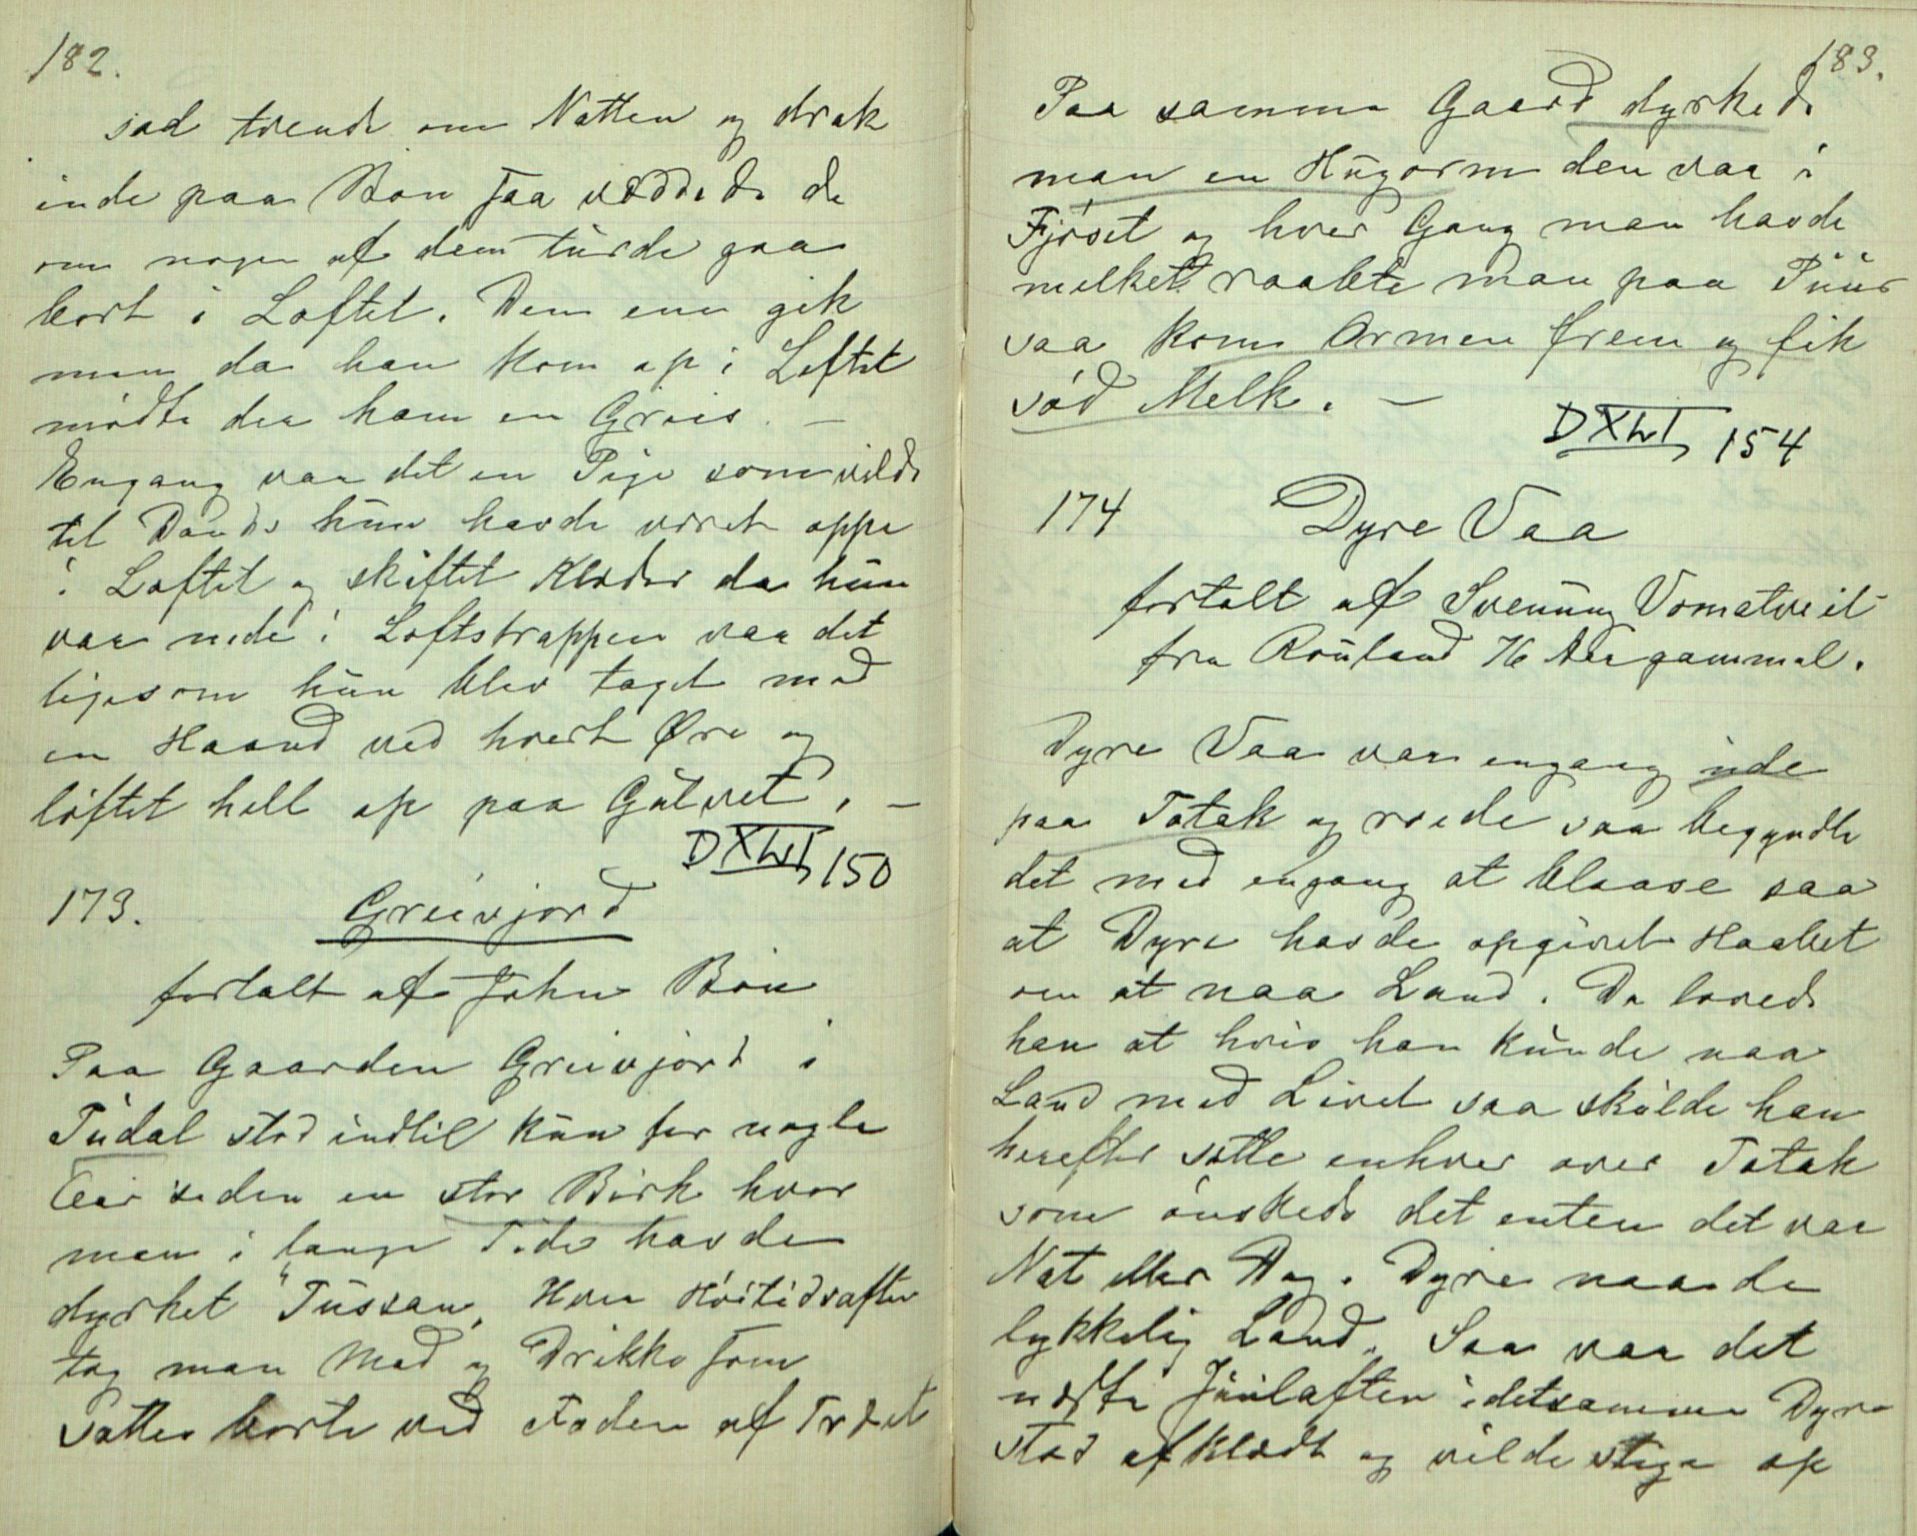 182.
sad trende om Natten og drak
inde paa Bøn saa væddede de
om nogen af dem turde gaa
bort i Loftet. Den ene gik
men da han kom op i Loftet
mødte der ham en Griis. —
Engang var det en Pige som vilde
til Dands hun havde været oppe
i Loftet og skiftet Klæder da hun
var nede i Loftstrappen var det
ligesom hun blev taget med
en Haand ved hvert Øre og
løftet helt op paa Gulvet. —
DXLVI, 150
173. Greivjord
fortalt af John Bøn
Paa Gaarden Greivjord i
Tudal stod indtil kun for nogle
Aar siden en stor Birk hvor
man i lange Tider havde
dyrket "Tussan„ Hver Høitidsaften
tog man Mad og Drikke som
sattes borte ved Foden af Træet
183.
Paa samme Gaard dyrkede
man en Hugorm den var i
Fjøset og hver Gang man havde
melket raabte man paa Tuur
saa kom Ormen frem og fik
sød Melk. —
DXLVI, 154
174 Dyre Vaa
fortalt af Svenung Vomatveit
fra Rauland 76 Aar gammel.
Dyre Vaa var engang ude
paa Totak og roede saa begyndte
det med engang at blaase saa
at Dyre havde opgivet Haabet
om at naa Land. Da lovede
han at hvis han kunde naa
Land med Livet saa skulde han
herefter sætte enhver over Totak
som ønskede det enten det var
Nat eller Dag. Dyre naade
lykkelig Land. Saa var det
næste Juulaften idetsamme Dyre
stod afklædt og vilde stige op